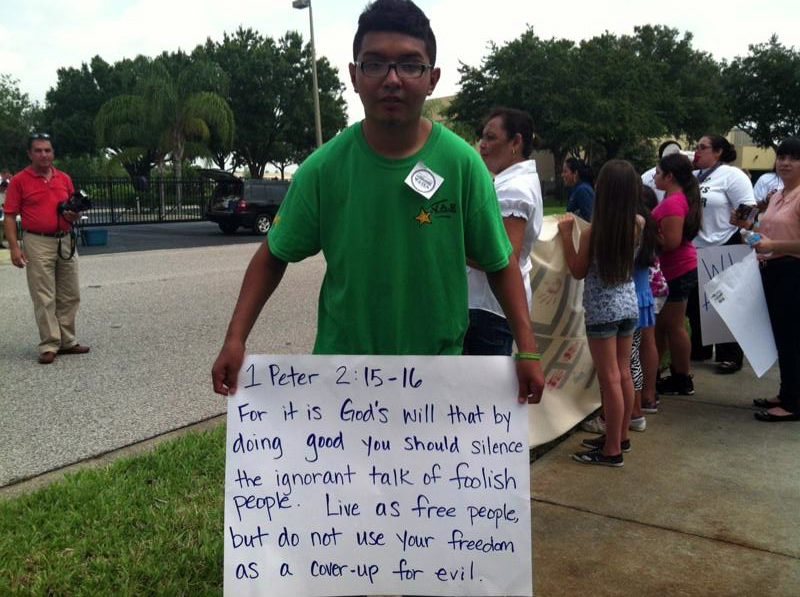 1 Peter 2:15-16
For it is God's will that by
doing good you should silence
the ignorant talk of foolish
people. Live as free people,
but do not use your freedom
as a cover-up for evil.